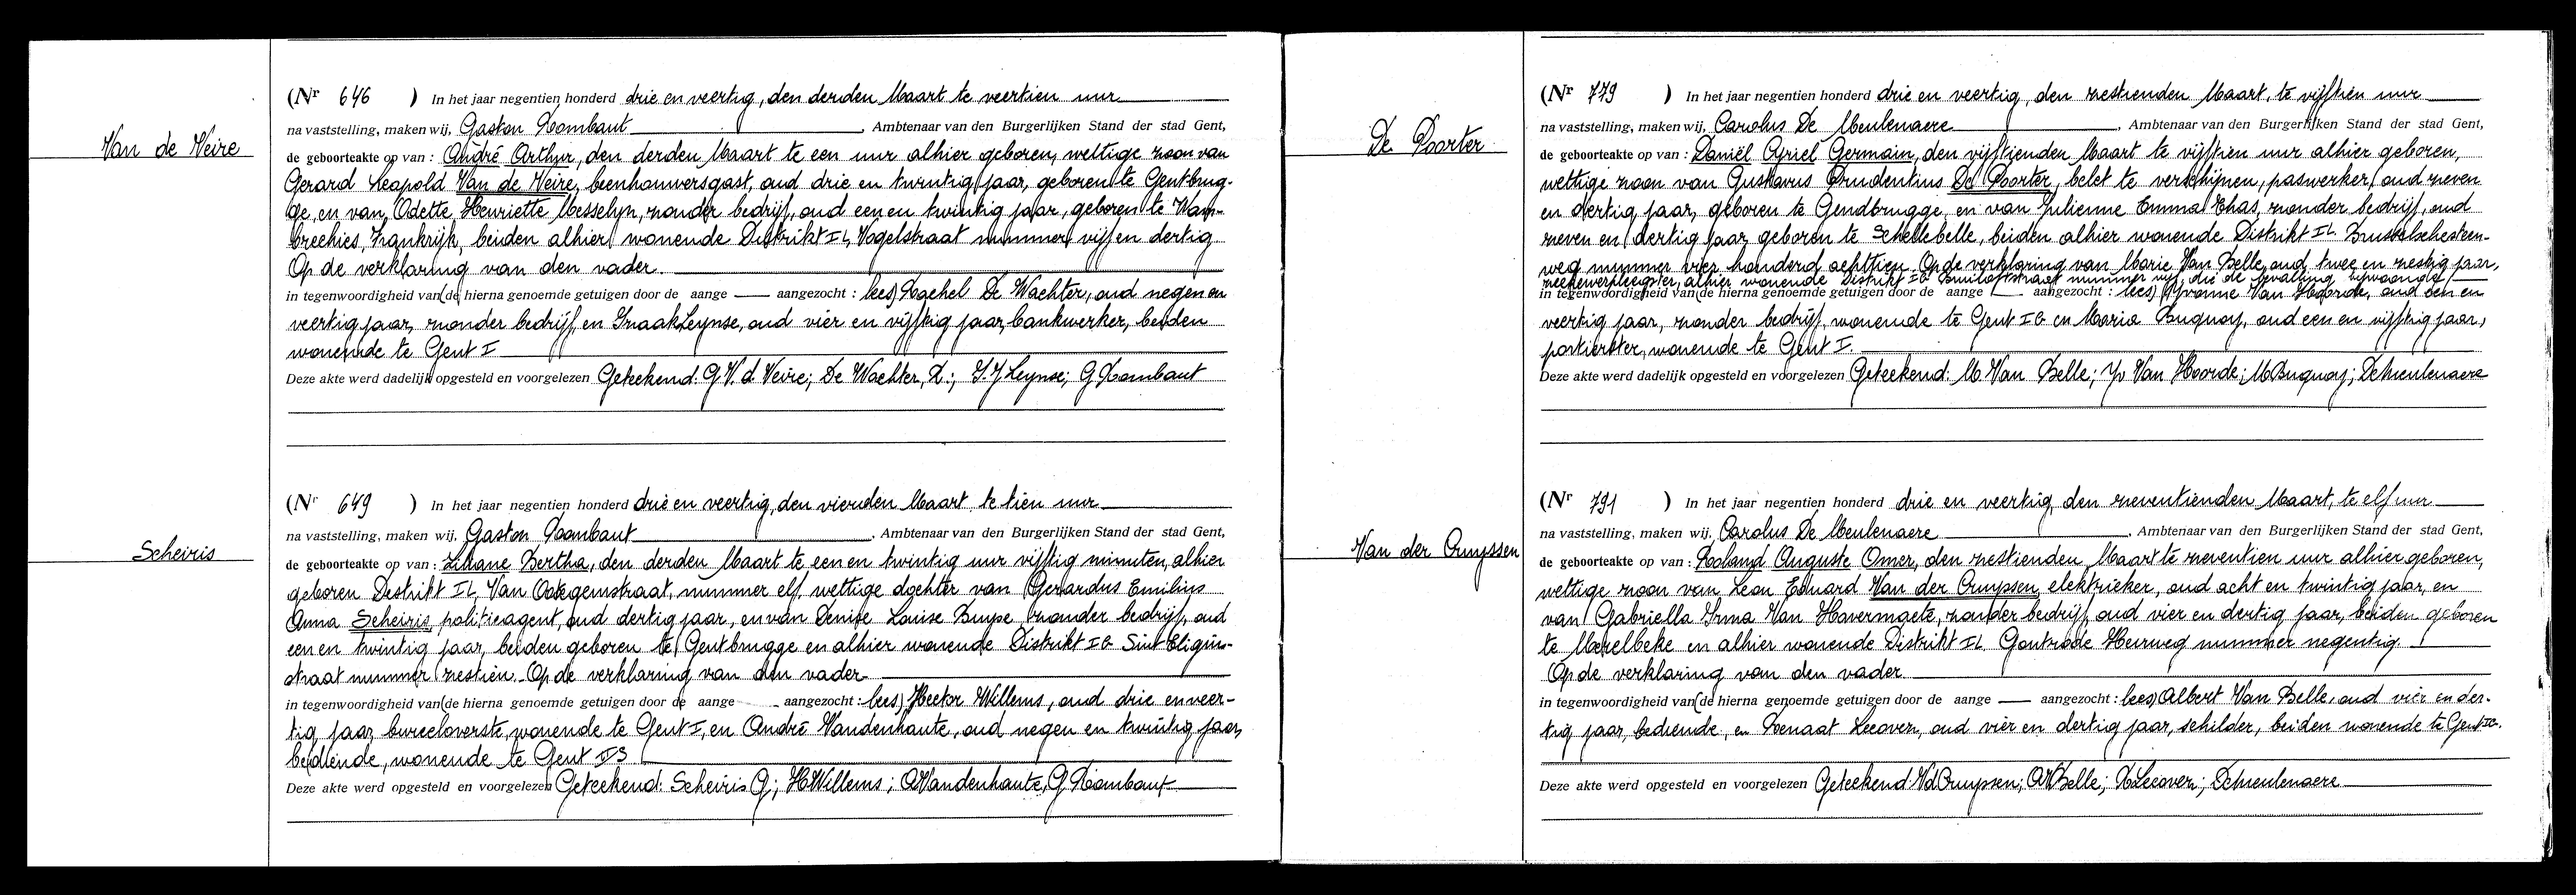 Van de Veire
(Nr 646 ) In het jaar negentien honderd drie en veertig, den derden Maart te veertien uur
na vaststelling, maken wij, Gaston Rombaut, Ambtenaar van den Burgerlijken Stand der stad Gent,
de geboorteakte op van : André Arthur, den derden Maart te een uur alhier geboren, wettige zoon van
Gerard Leopold Van de Veire, beenhouwersgast, oud drie en twintig jaar, geboren te Gentbrug-
ge, en van Odette Henriette Messelyn, zonder bedrijf, oud een en twintig jaar, geboren te Wam-
brechies, Frankrijk, beiden alhier wonende Distrikt IL, Vogelstraat nummer vijf en dertig
Op de verklaring van den vader.
in tegenwoordigheid van (de hierna genoemde getuigen door de aange — aangezocht : lees) Rachel De Wachter, oud negen en
veertig jaar, zonder bedrijf, en Izaak Leynse, oud vier en vijftig jaar, bankwerker, beiden
wonende te Gent I
Deze akte werd dadelijk opgesteld en voorgelezen Geteekend: G V. d. Veire; De Wachter, R.; I. J Leynse; G Rombaut
Scheiris
(Nr 649 ) In het jaar negentien honderd drie en veertig, den vierden Maart te tien uur
na vaststelling, maken wij, Gaston Rombaut, Ambtenaar van den Burgerlijken Stand der stad Gent,
de geboorteakte op van : Liliane Bertha, den derden Maart te een en twintig uur vijftig minuten, alhier
geboren Distrikt IL, Van Ootegemstraat, nummer elf, wettige dochter van Gerardus Emilius
Anna Scheiris, politieagent, oud dertig jaar, en van Denise Louise Buyse, zonder bedrijf, oud
een en twintig jaar, beiden geboren te Gentbrugge en alhier wonende Distrikt IG Sint Eligius-
straat nummer zestien. Op de verklaring van den vader
in tegenwoordigheid van (de hierna genoemde getuigen door de aange — aangezocht : lees) Hector Willems, oud drie en veer-
tig jaar, bureeloverste, wonende te Gent I, en André Vandenhaute, oud negen en twintig jaar,
bediende, wonende te Gent
Deze akte werd opgesteld en voorgelezen Geteekend: Scheiris G; H Willems; A Vandenhaute, G Rombaut
De Poorter
(Nr 779 ) In het jaar negentien honderd drie en veertig, den zestienden Maart, te vijftien uur
na vaststelling, maken wij, Carolus De Meulenaere, Ambtenaar van den Burgerlijken Stand der stad Gent,
de geboorteakte op van : Daniël Cyriel Germain, den vijftienden Maart te vijftien uur alhier geboren,
wettige zoon van Gustavus Prudentius De Poorter, belet te verschijnen, paswerker, oud zeven
en dertig jaar, geboren te Gendbrugge, en van Julienne Emma Ehas, zonder bedrijf, oud
zeven en dertig jaar, geboren te Schellebelle, beiden alhier wonende Distrikt IL Brusselschesteen-
weg nummer vier honderd achttien. Op de verklaring van Marie Van Belle, oud twee en zestig jaar,
ziekenverpleegster, alhier wonende Distrikt IG nummer vijf, die de bevalling bijwoonde
in tegenwoordigheid van (de hierna genoemde getuigen door de aange — aangezocht : lees) Yvonne Van Hoorde, oud een en
veertig jaar, zonder bedrijf, wonende te Gent IG en Maria Buquoy, oud een en vijftig jaar,
portierster, wonende te Gent I.
Deze akte werd dadelijk opgesteld en voorgelezen Geteekend: M. Van Belle; Yv Van Hoorde; M Buquoy; DeMeulenaere
Van der Cruyssen
(Nr 791 ) In het jaar negentien honderd drie en veertig, den zeventienden Maart, te elf uur
na vaststelling, maken wij, Carolus De Meulenaere, Ambtenaar van den Burgerlijken Stand der stad Gent,
de geboorteakte op van : Roland Auguste Omer, den zestienden Maart te zeventien uur alhier geboren,
wettige zoon van Leon Eduard Van der Cruyssen, elektrieker, oud acht en twintig jaar, en
van Gabriella Irma Van Havermaete, zonder bedrijf, oud vier en dertig jaar, beiden geboren
te Merelbeke en alhier wonende Distrikt IL Gontrode Heirweg nummer negentig.
Op de verklaring van den vader
in tegenwoordigheid van (de hierna genoemde getuigen door de aange — aangezocht : lees) Albert Van Belle, oud vier en der-
tig jaar, bediende, en Renaat Lecover, oud vier en dertig jaar, schilder, beiden wonende te Gent IG.
Deze akte werd opgesteld en voorgelezen Geteekend: VdCruyssen; A V Belle; R Lecover; DeMeulenaere